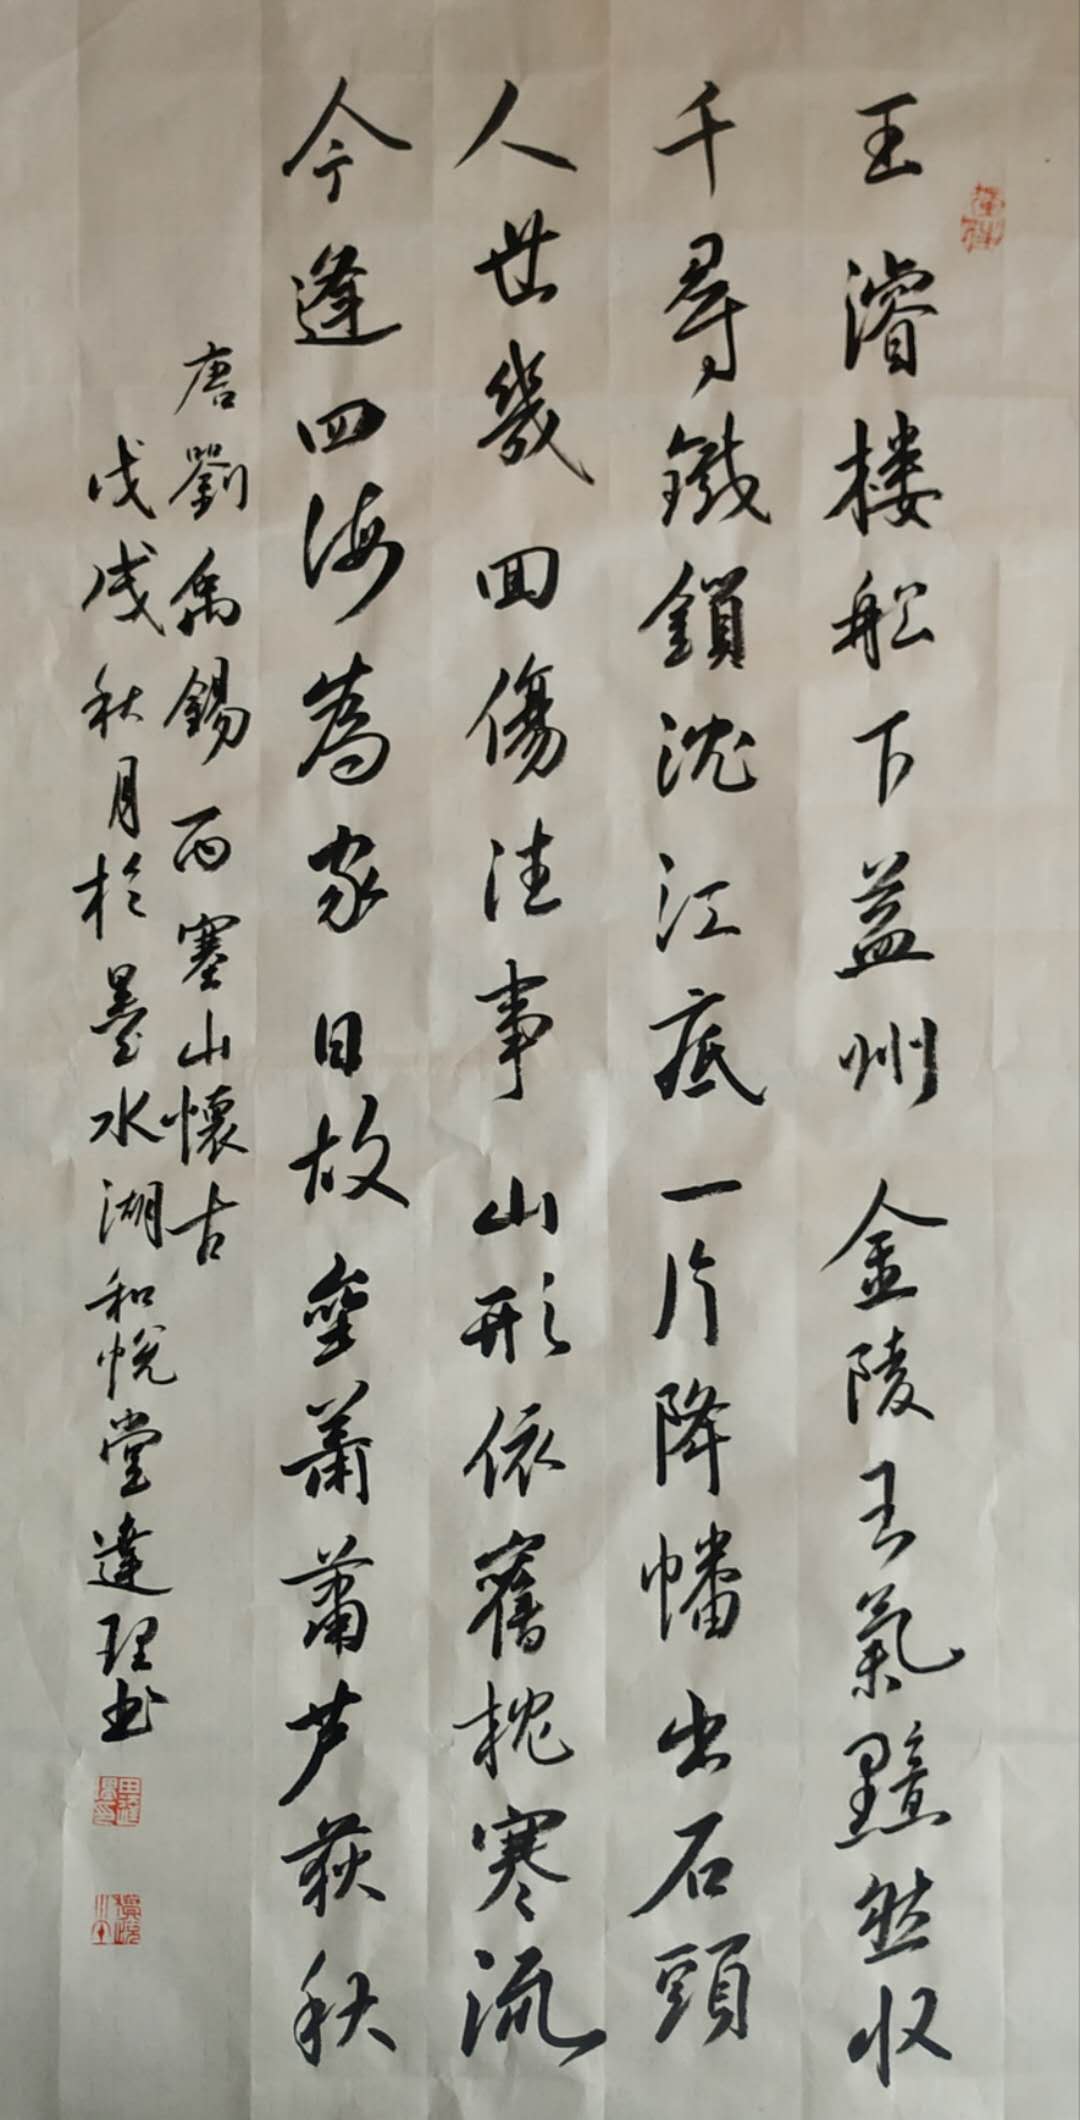 王濬楼船下益州金陵王氣黯然收
千尋鐵鎖沈江底一片降幡出石頭
人世幾回傷往事山形依舊枕寒流
今逢四海為家日故壘蕭蕭芦荻秋
唐劉禹錫西塞山懷古
戊戌秋月於墨水湖和悅堂達理书